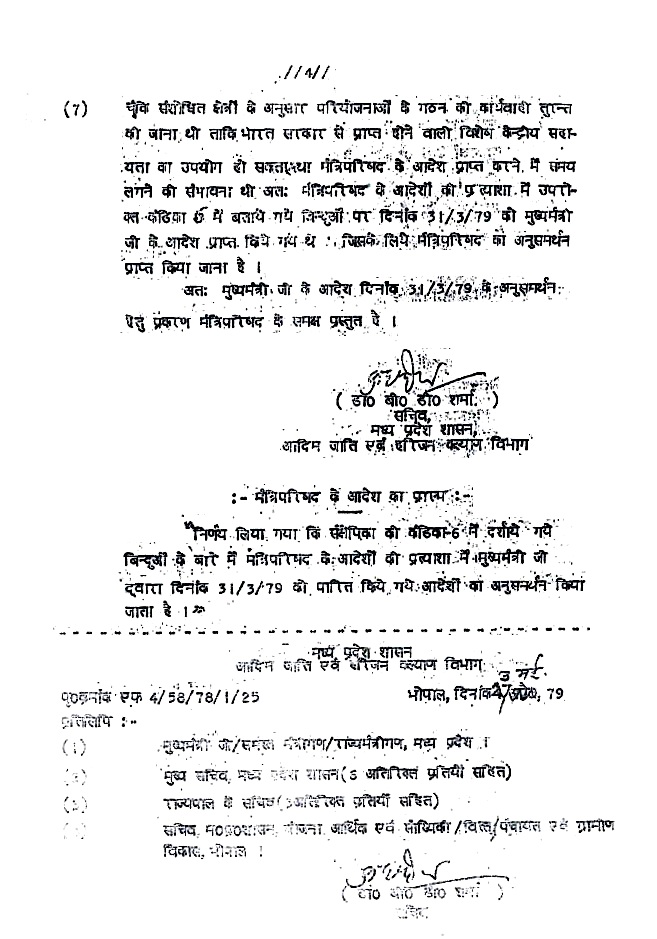 //4//
(7) चूंकि संशोधित क्षेत्रों के अनुसार परियोजनाओं के गठन की कार्यवाही तुरन्त
की जाना थी ताकि भारत सरकार से प्राप्त होने वाली विशेष केन्द्रीय सहा-
यता का उपयोग हो सकता तथा मंत्रिपरिषद के आदेश प्राप्त करने में समय
लगने की संभावना थी अतः मंत्रिपरिषद के आदेशों की प्रत्याशा में उपरो-
क्त कंडिका 6 में बताये गये बिन्दुओं पर दिनांक 31/3/79 को मुख्यमंत्री
जी के आदेश प्राप्त किये गये थे जिसके लिये मंत्रिपरिषद का अनुसमर्थन
प्राप्त किया जाना है ।
अतः मुख्यमंत्री जी के आदेश दिनांक 31/3/79 के अनुसमर्थन
हेतु प्रकरण मंत्रिपरिषद के समक्ष प्रस्तुत है ।
( डॉ0 बी0 डी0 शर्मा )
सचिव,
मध्य प्रदेश शासन,
आदिम जाति एवं हरिजन कल्याण विभाग
:- मंत्रिपरिषद के आदेश का प्रारूप :-
"निर्णय लिया गया कि संक्षेपिका की कंडिका-6 में दर्शाये गये
बिन्दुओं के बारे में मंत्रिपरिषद के आदेशों की प्रत्याशा में मुख्यमंत्री जी
द्वारा दिनांक 31/3/79 को पारित किये गये आदेशों का अनुसमर्थन किया
जाता है ।"
मध्य प्रदेश शासन
आदिम जाति एवं हरिजन कल्याण विभाग
3 मई
पृ0क्रमांक एफ 4/58/78/1/25 भोपाल, दिनांक 79
प्रतिलिपि :-
(1) मुख्यमंत्री जी/समस्त मंत्रीगण/राज्यमंत्रीगण, मध्य प्रदेश ।
(2) मुख्य सचिव, मध्य प्रदेश शासन(5 अतिरिक्त प्रतियों सहित)
(3) राज्यपाल के सचिव(3अतिरिक्त प्रतियों सहित)
(4) सचिव, म0प्र0शासन, योजना आर्थिक एवं सांख्यिकी/वित्त/पंचायत एवं ग्रामीण
विकास, भोपाल ।
( डॉ0 बी0 डी0 शर्मा )
सचिव